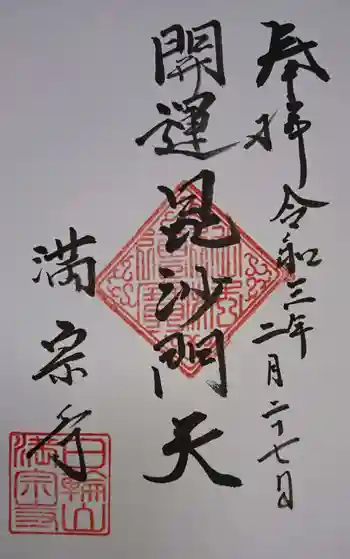 奉拝
令和三年二月二十七日
開運毘沙門天
満宗寺
日輪山
満宗寺